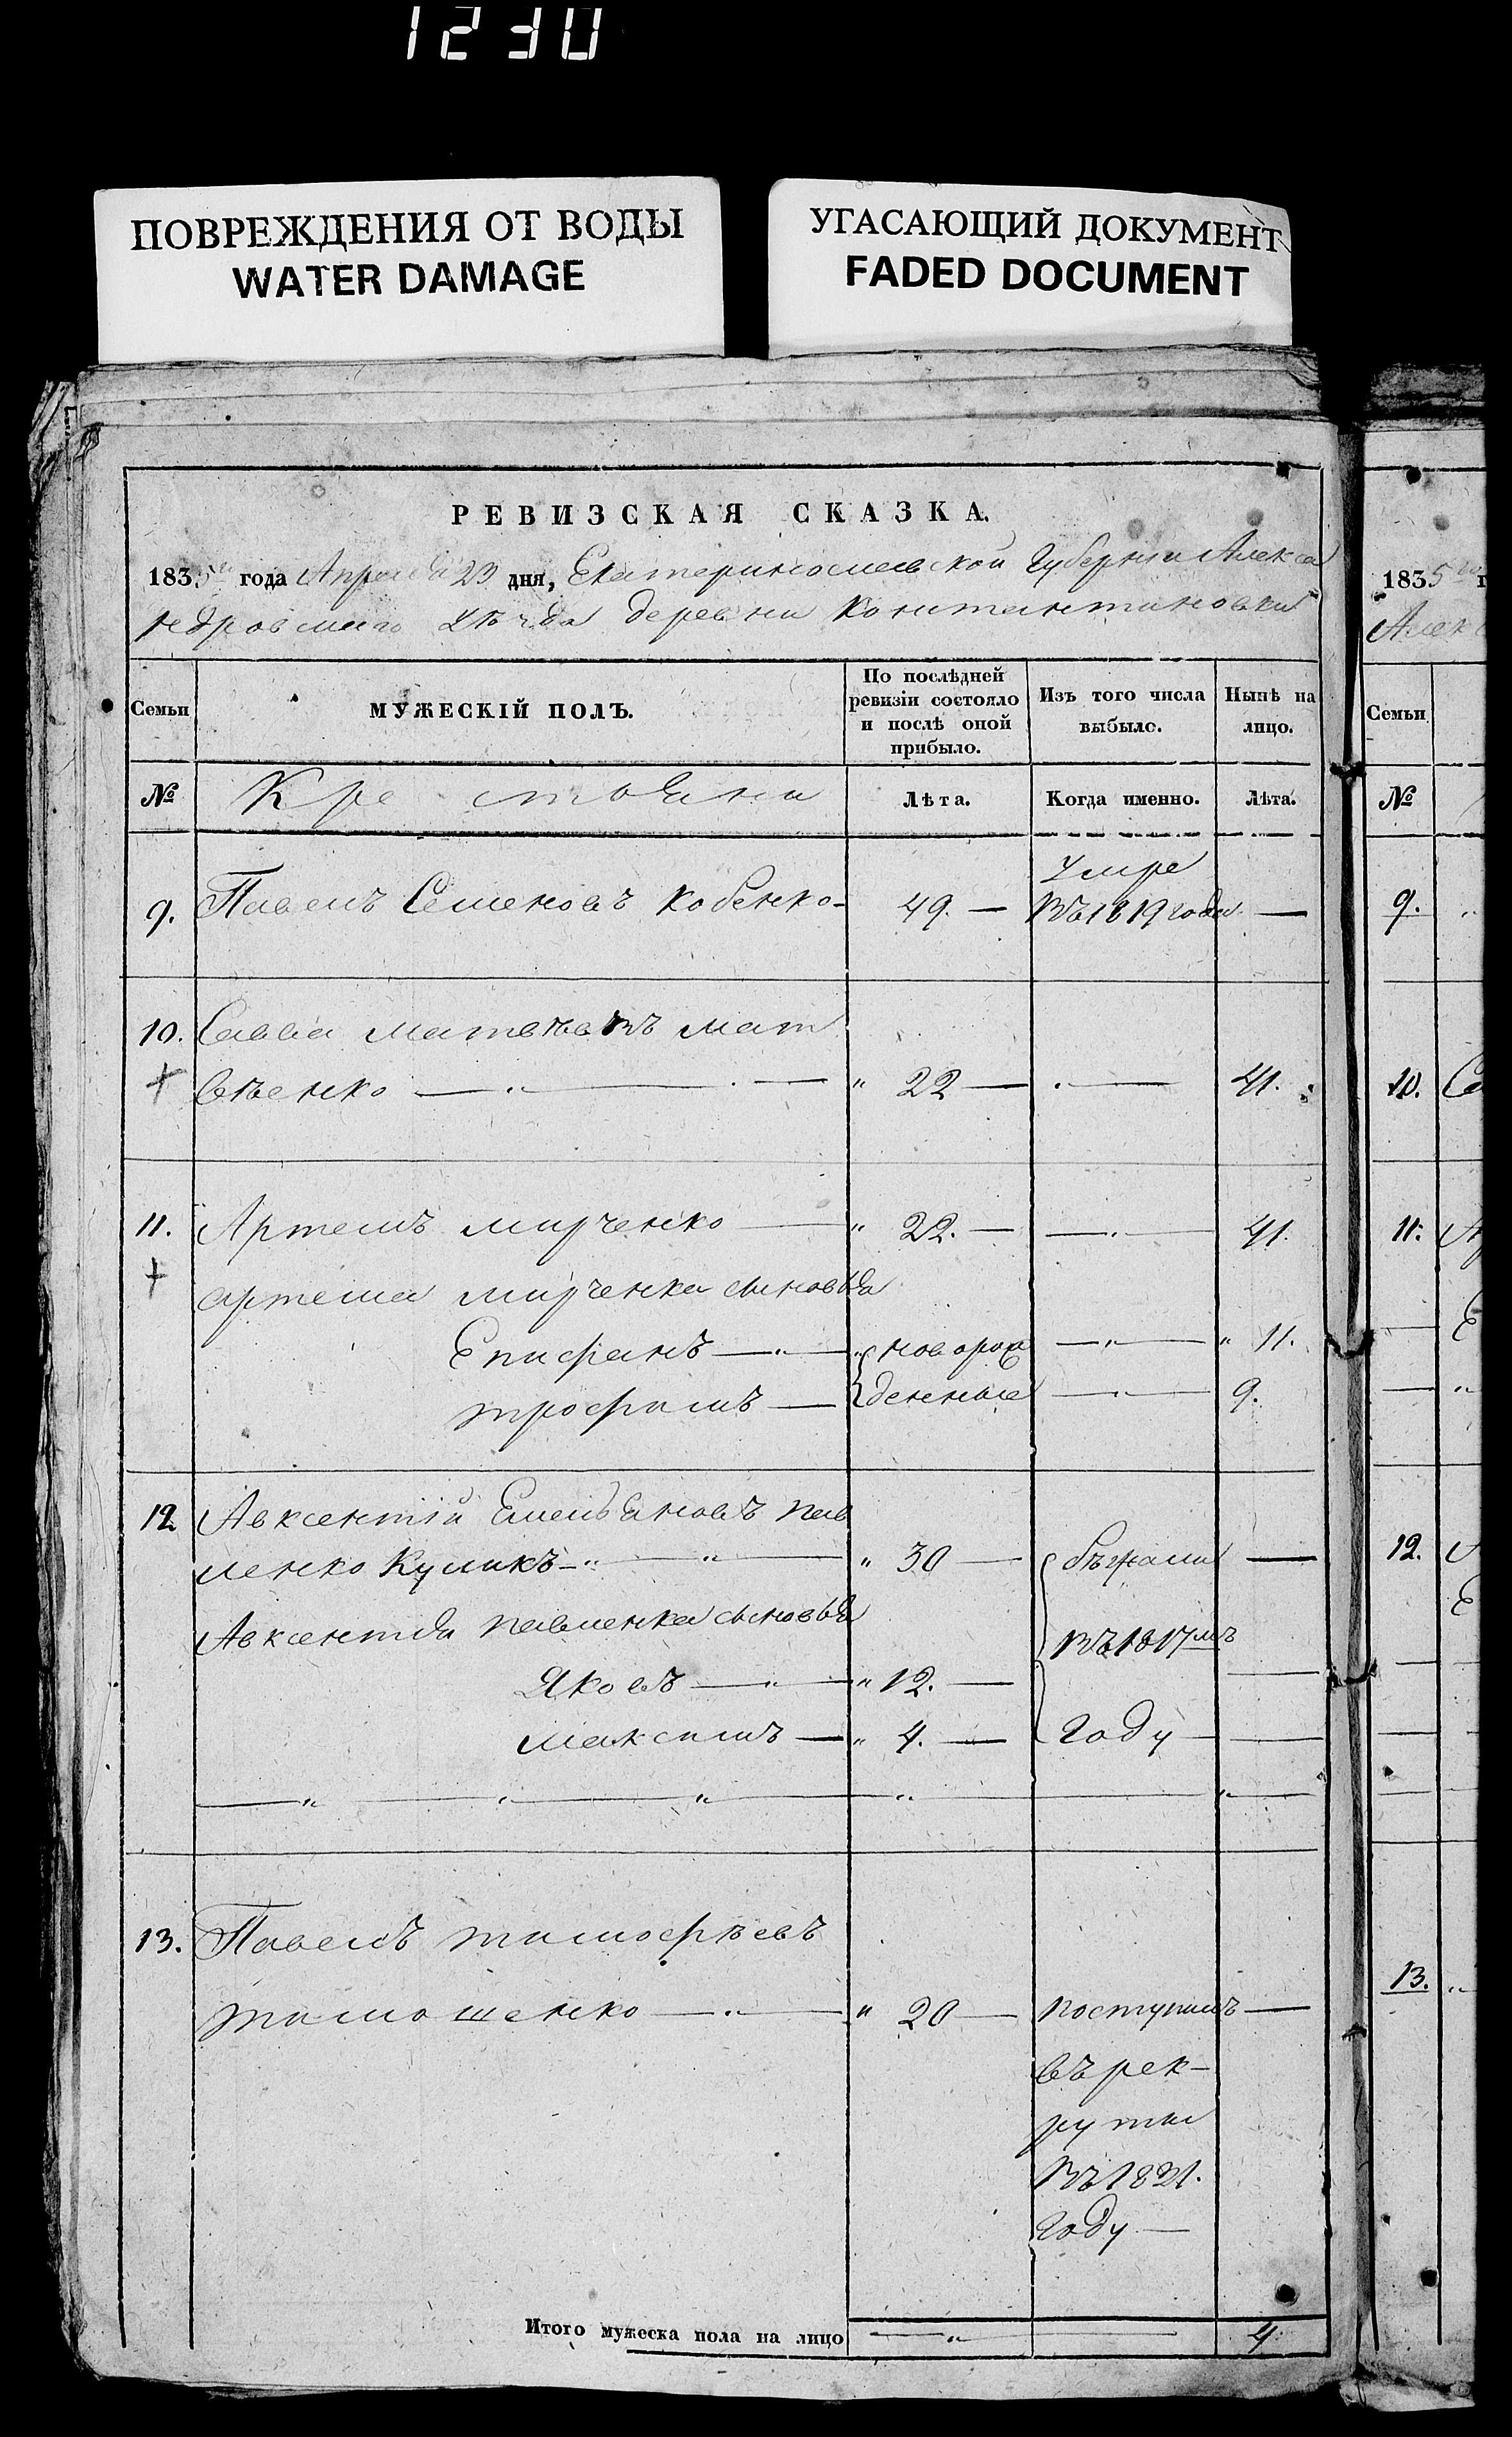 1230
ПОВРЕЖДЕНИЯ ОТ ВОДЫ
WATER DAMAGE
УГАСАЮЩИЙ ДОКУМЕНТ
FADED DOCUMENT
РЕВИЗСКАЯ СКАЗКА.
1835 года Апреля 23 дня, Екатеринославской Губернии Алекса
ндровскаго уѣзда деревни Константиновки
Семьи
МУЖЕСКІЙ ПОЛЪ.
По послѣдней ревизіи состояло и послѣ оной прибыло.
Изъ того числа выбыло.
Нынѣ на лицо.
№ Крестьяне Лѣта. Когда именно. Лѣта.
умре
9. Павелъ Семеновъ Кобенко 49. — Въ 1819 года —
10. Савва Матвѣевъ Мат
вѣенко — " 22 — — 41.
11. Артемъ Мирченко — " 22. — — 41.
Артема Мирченка сыновья
Епифанъ — новорож — " 11.
трофимъ — денные — 9.
12 Авксентій Емельяновъ Пав
ленко Куликъ — " 30 — бѣжали —
Авксентія Павленка сыновья
въ 1817мъ
Яковъ — " 12. — —
Максимъ — " 4. — году —
13. Павелъ тимофѣевъ
тимошенко — " 20 — поступилъ —
въ рек-
руты
Въ 1831.
году —
Итого мужеска пола на лицо — " — 4
1835 г
Алек
Семьи
№
9.
10. Са
11. А
Е
12. А
Е
13.